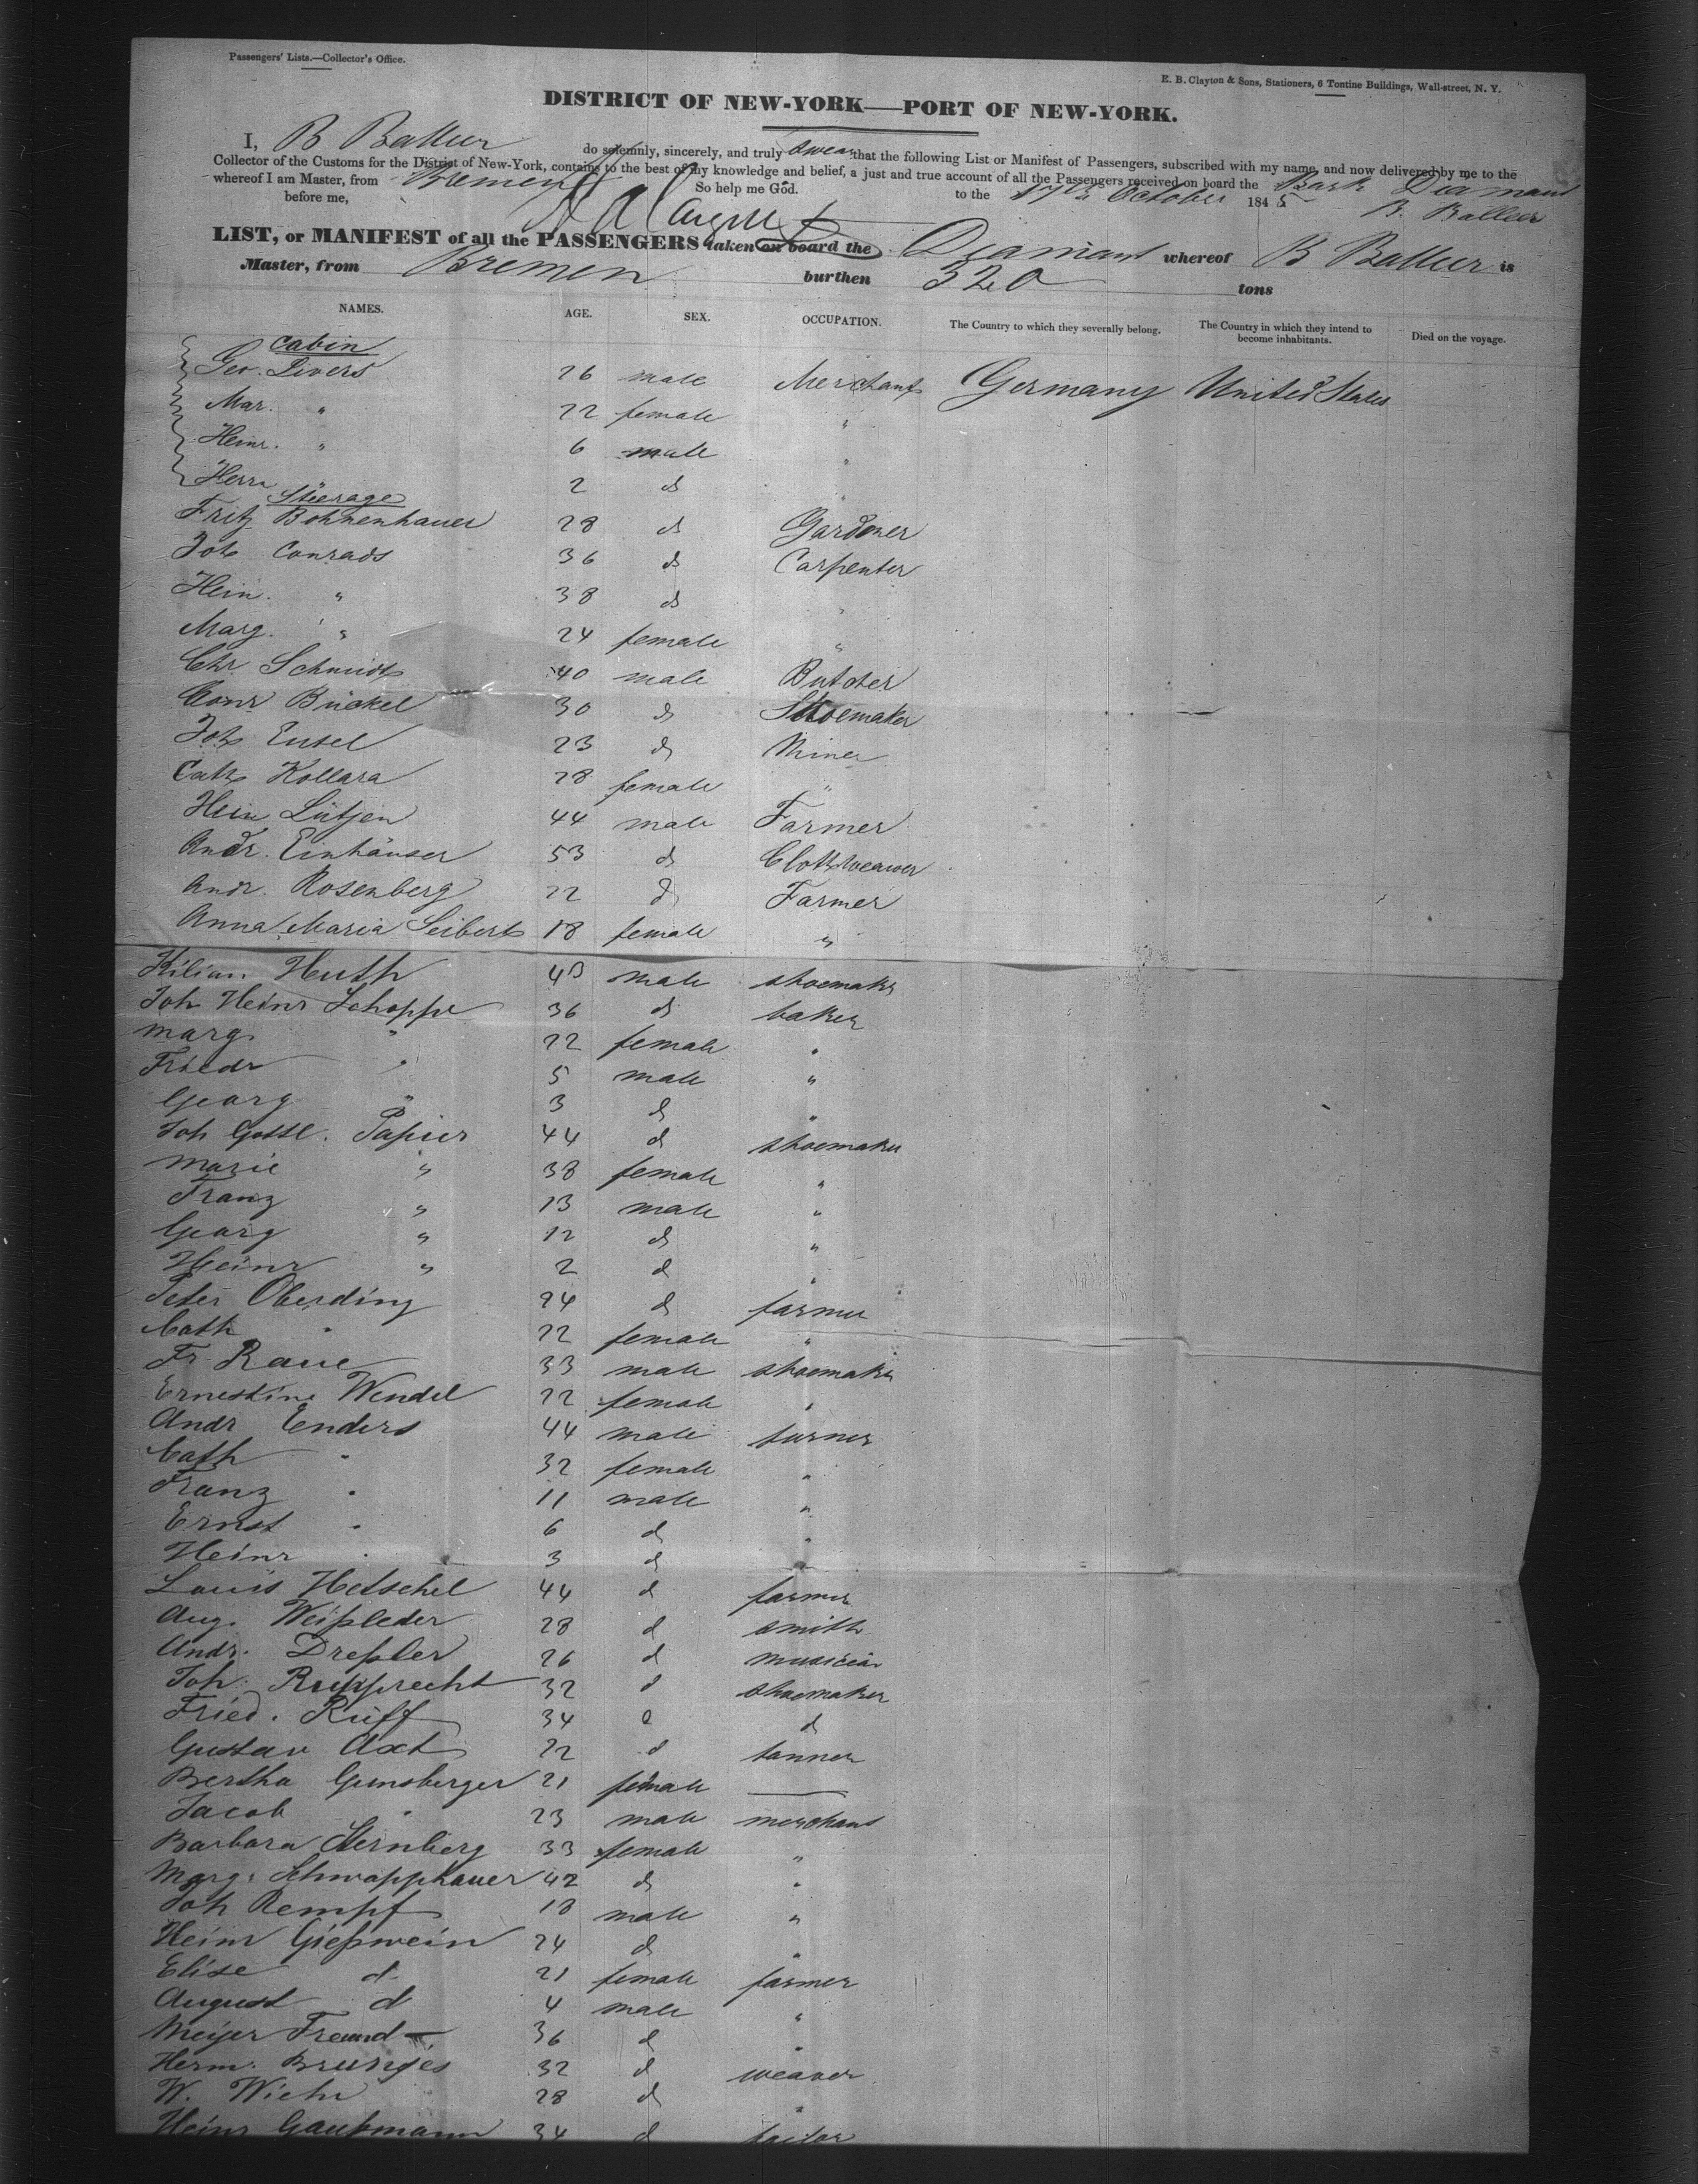 Passengers' Lists.—Collector's Office.
E. B. Clayton & Sons, Stationers, 6 Tontine Buildings, Wall-street, N. Y.
DISTRICT OF NEW-YORK—PORT OF NEW-YORK.
I, B Balleer do solemnly, sincerely, and truly swear that the following List or Manifest of Passengers, subscribed with my name, and now delivered by me to the
Collector of the Customs for the District of New-York, contains to the best of my knowledge and belief, a just and true account of all the Passengers received on board the Bark Diamant
whereof I am Master, from Bremen
So help me God. to the 17th October 1845 B. Balleer
before me,
LIST, or MANIFEST of all the PASSENGERS taken on board the Diamant whereof B Balleer is
Master, from Bremen burthen 320 tons
NAMES. AGE. SEX. OCCUPATION. The Country to which they severally belong. The Country in which they intend to become inhabitants. Died on the voyage.
Cabin
Geo. Sivers 26 male Merchant Germany United States
Mar. " 22 female "
Heinr. " 6 male "
Herm 2 do "
Steerage
Fritz Bohnenhauer 28 do Gardener
Joh Conrads 36 do Carpenter
Hein. " 38 do "
Marg. " 24 female "
Chr. Schmidt 40 male Butcher
Conr Buckel 30 do Shoemaker
Joh Eusel 23 do Miner
Cath Kollara 28 female "
Hein Lütjen 44 male Farmer
Andr. Einhäuser 53 do Clothweaver
Andr. Rosenberg 22 do Farmer
Anna Maria Seibert 18 female "
Kilian Huth 43 male shoemaker
Joh Heinr Schoppe 36 do baker
Marg. " 22 female "
Friedr " 5 male "
Georg " 3 d "
Joh Gottl. Papier 44 d shoemaker
Marie " 38 female "
Franz " 13 male "
Georg " 12 d "
Heinr " 2 d "
Peter Oberding 24 d farmer
Cath " 22 female "
Fr Raue 33 male shoemaker
Ernestine Wendel 22 female "
Andr Enders 44 male turner
Cath " 32 female "
Franz " 11 male "
Ernst " 6 d "
Heinr " 3 d "
Louis Hetschel 44 d farmer
Aug. Weißleder 28 d smith
Andr. Dreßler 26 d musician
Joh. Rupprecht 32 d shoemaker
Fried. Ruff 34 d d
Gustav Axt 22 d tanner
Bertha Gunsberger 21 female —
Jacob " 23 male merchant
Barbara Sternberg 33 female "
Marg. Schwapphauer 42 d "
Joh Rempf 18 male "
Heinr Gießwein 24 d "
Elise d 21 female farmer
August d 4 male "
Meijer Freund 36 d "
Herm. Brunjes 32 d weaver
W. Wiehr 28 d "
Heinr Gaußmann 34 d tailor